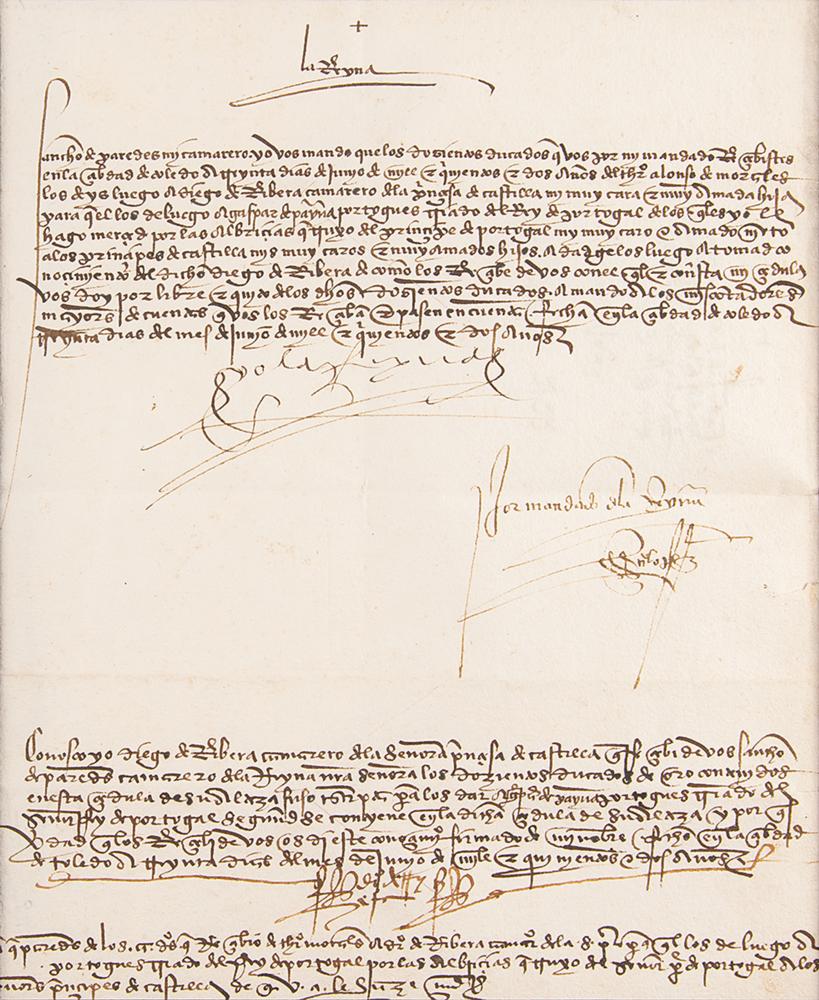 la Reyna
Sancho de paredes mi camarero yo vos mando que los dozientos ducados q̃ vos por mi mandado Reçebistes
en la çibdad de toledo a treynta dias de junio de mill e quinientos e dos años del thr̃o alonso de morales
los deys luego a diego de Ribera camarero de la prinçesa de castilla mi muy cara e muy amada hija
para q̃ el los de luego a gaspar de payna portogues criado del Rey de portogal de los q̃les yo le
hago merçed por las albriçias q̃ truxo del prinçipe de portogal my muy caro e amado nieto
a los prinçipes de castilla mis muy caros e muy amados hijos. dadgelos luego e tomad co
noçimiento del dicho diego de Ribera de como los Reçibe de vos con el q̃l e con esta mi çedula
vos doy por libre e quito de los dichos dozientos ducados. e mando a los mis contadores
mayores de cuentas q̃ vos los Reçiban e pasen en cuenta fecha en la çibdad de toledo a
treynta dias del mes de junio de mill e quinientos e dos años
yo la Reyna
Por mandado de la Reyna
Conosco yo diego de Ribera camarero de la señora prinçesa de castilla q̃ Reçebi de vos sancho
de paredes camarero de la Reyna nr̃a señora los dozientos ducados de oro contenidos
en esta çedula de su alteza para los dar a gaspar de payna portogues criado del
señor Rey de portogal segund se contiene en la dicha çedula de su alteza y por q̃
es verdad q̃ los Reçebi de vos os di este conosçimiento firmado de mi nonbre fecho en la çibdad
de toledo a treynta dias del mes de junio de mill e quinientos e dos años
de Ribera de la q̃ el los de luego a
portogues criado del Rey de portogal por las albriçias q̃ truxo del señor prinçipe de portogal a los
señores prinçipes de castilla